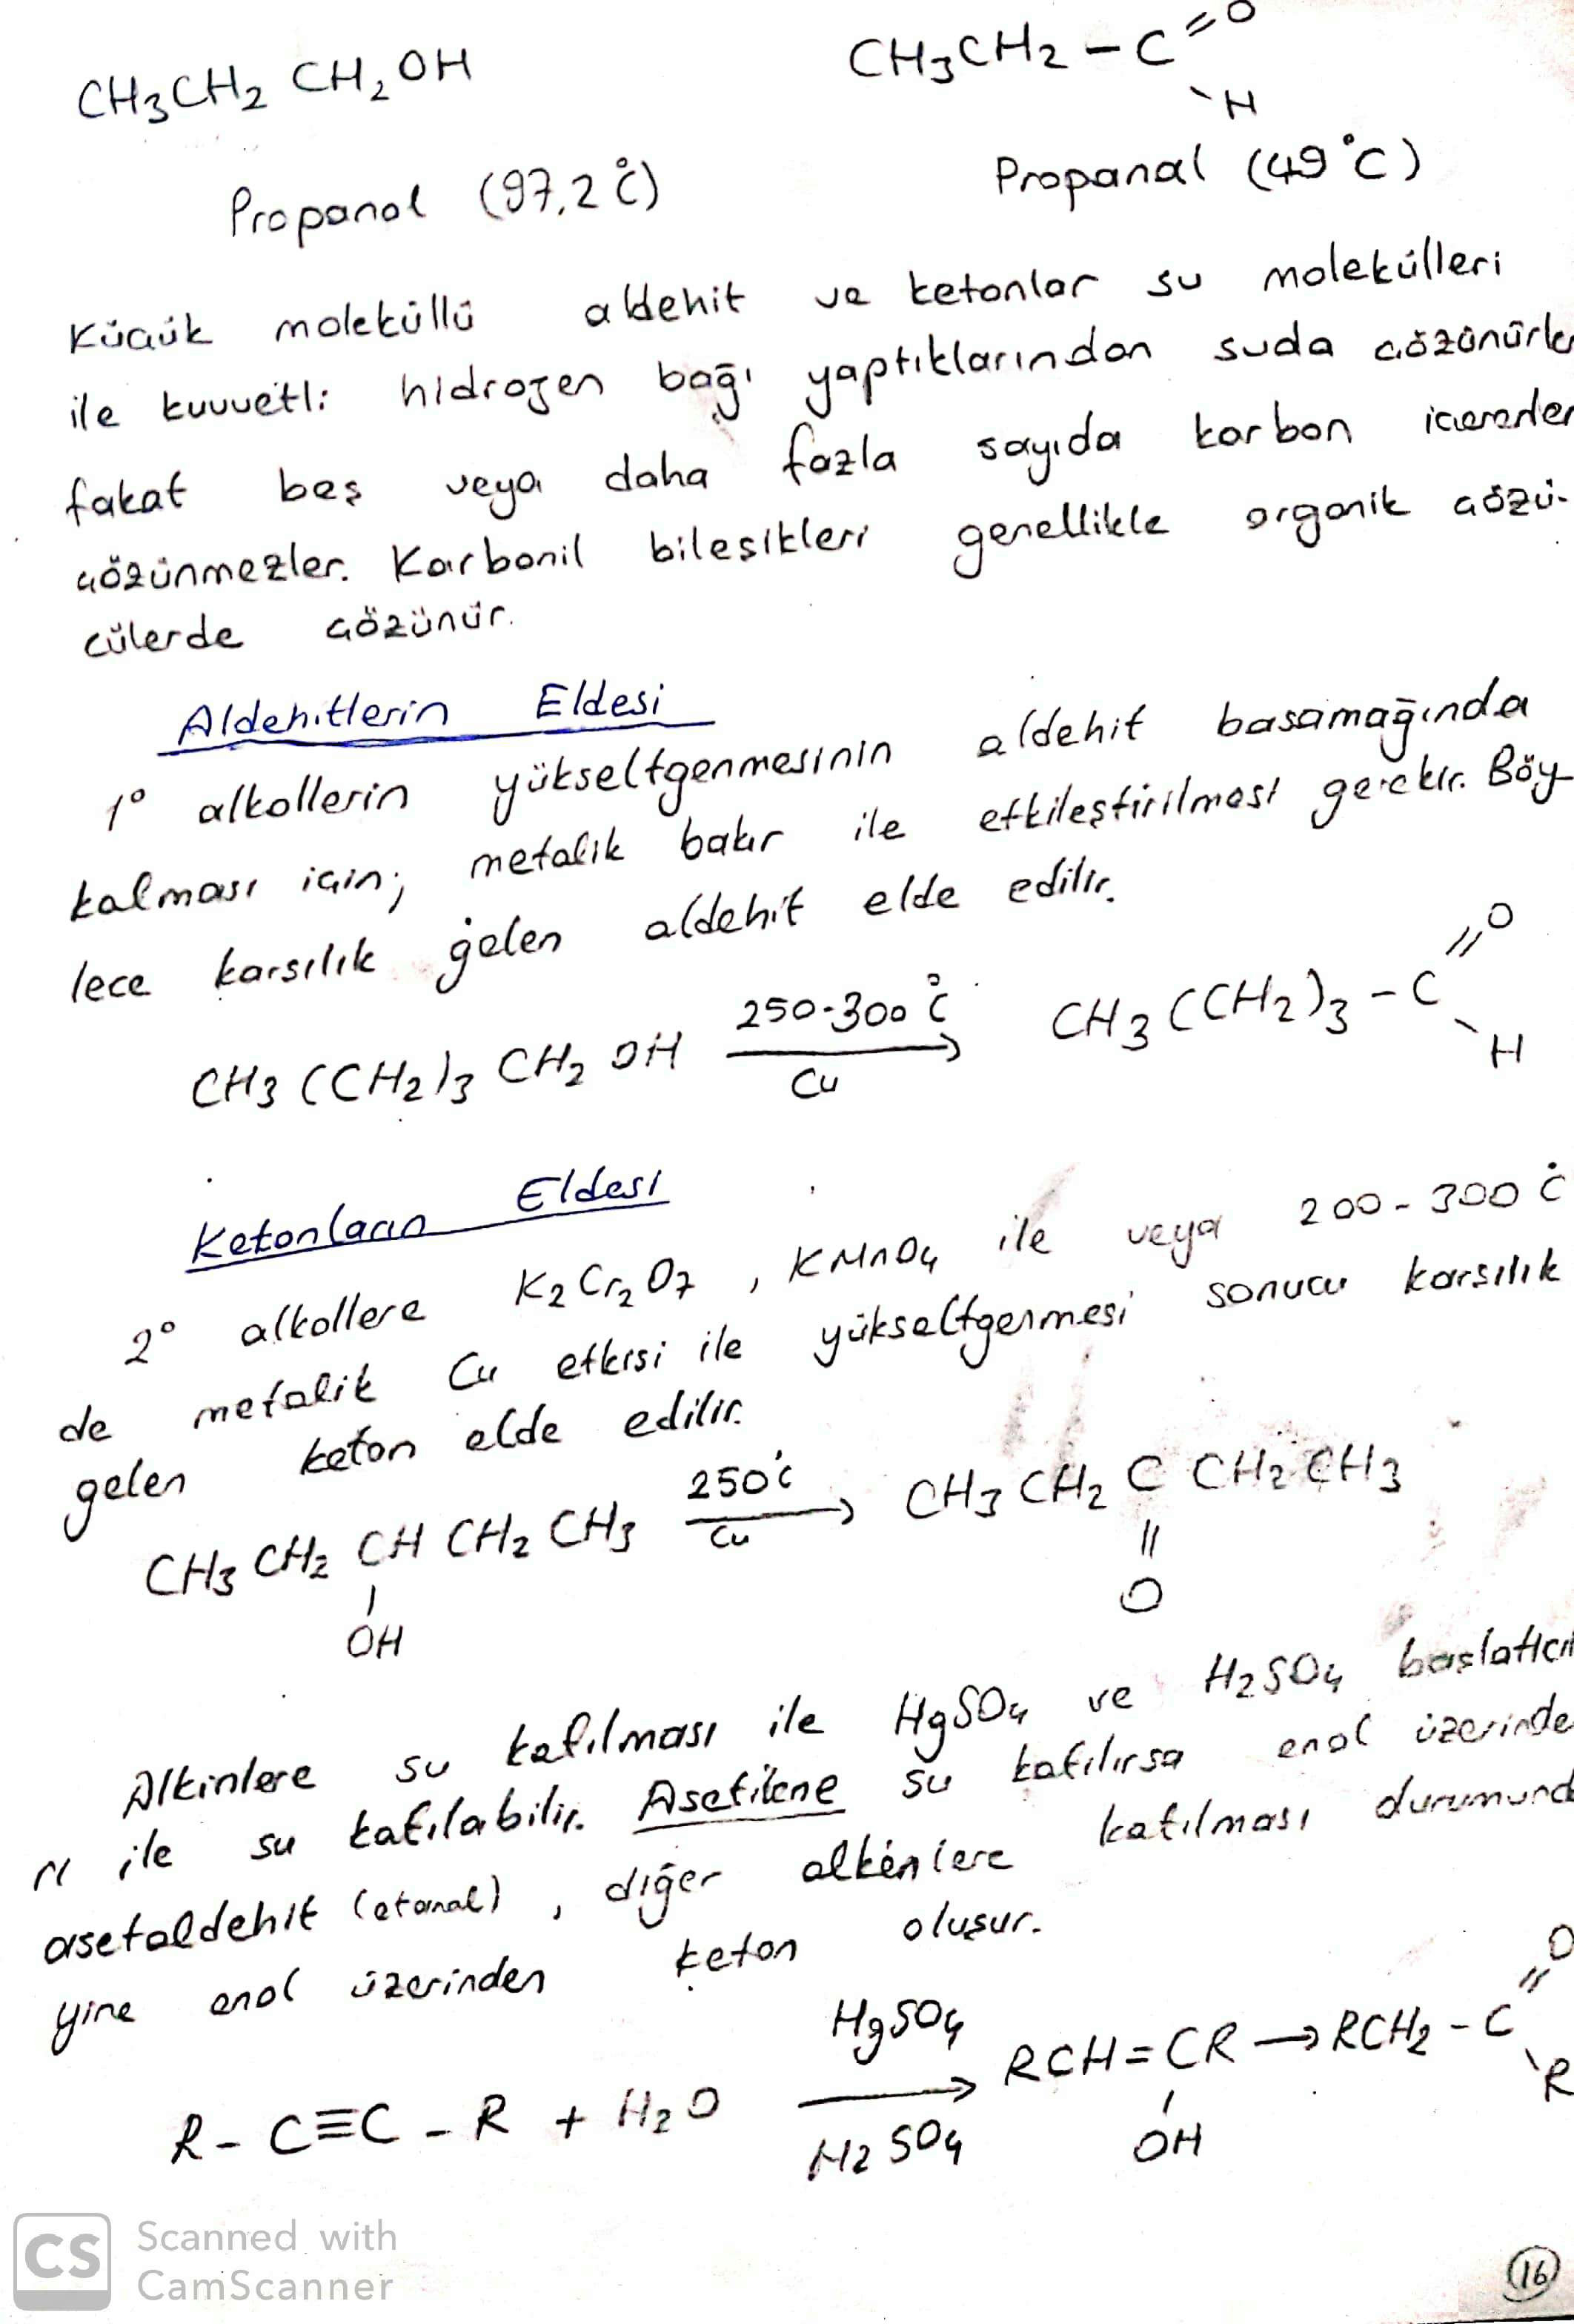 CH₃CH₂CH₂OH CH₃CH₂-C=O
H
Propanol (97,2°C) Propanal (49°C)
Küçük moleküllü aldehit ve ketonlar su molekülleri
ile kuvvetli hidrojen bağı yaptıklarından suda çözünürler
fakat beş veya daha fazla sayıda karbon içerenler
çözünmezler. Karbonil bileşikleri genellikle organik çözü-
cülerde çözünür.
Aldehitlerin Eldesi
1° alkollerin yükseltgenmesinin aldehit basamağında
kalması için; metalik bakır ile etkileştirilmesi gerekir. Böy-
lece karşılık gelen aldehit elde edilir.
CH₃(CH₂)₃CH₂OH 250-300°C → Cu CH₃(CH₂)₃-C=O
H
Ketonların Eldesi
2° alkollere K₂Cr₂O₇, KMnO₄ ile veya 200-300°C
de metalik Cu etkisi ile yükseltgenmesi sonucu karşılık
gelen keton elde edilir.
CH₃CH₂CHCH₂CH₃ 250°C → Cu CH₃CH₂CCH₂CH₃
OH O
Alkinlere su katılması ile HgSO₄ ve H₂SO₄ başlatıcıla
rı ile su katılabilir. Asetilene su katılırsa enol üzerinde
asetaldehit (etanal), diğer alkenlere katılması durumund
yine enol üzerinden keton oluşur.
R-C≡C-R + H₂O HgSO₄ → H₂SO₄ RCH=CR → RCH₂-C=O
OH R
CS Scanned with
CamScanner
16